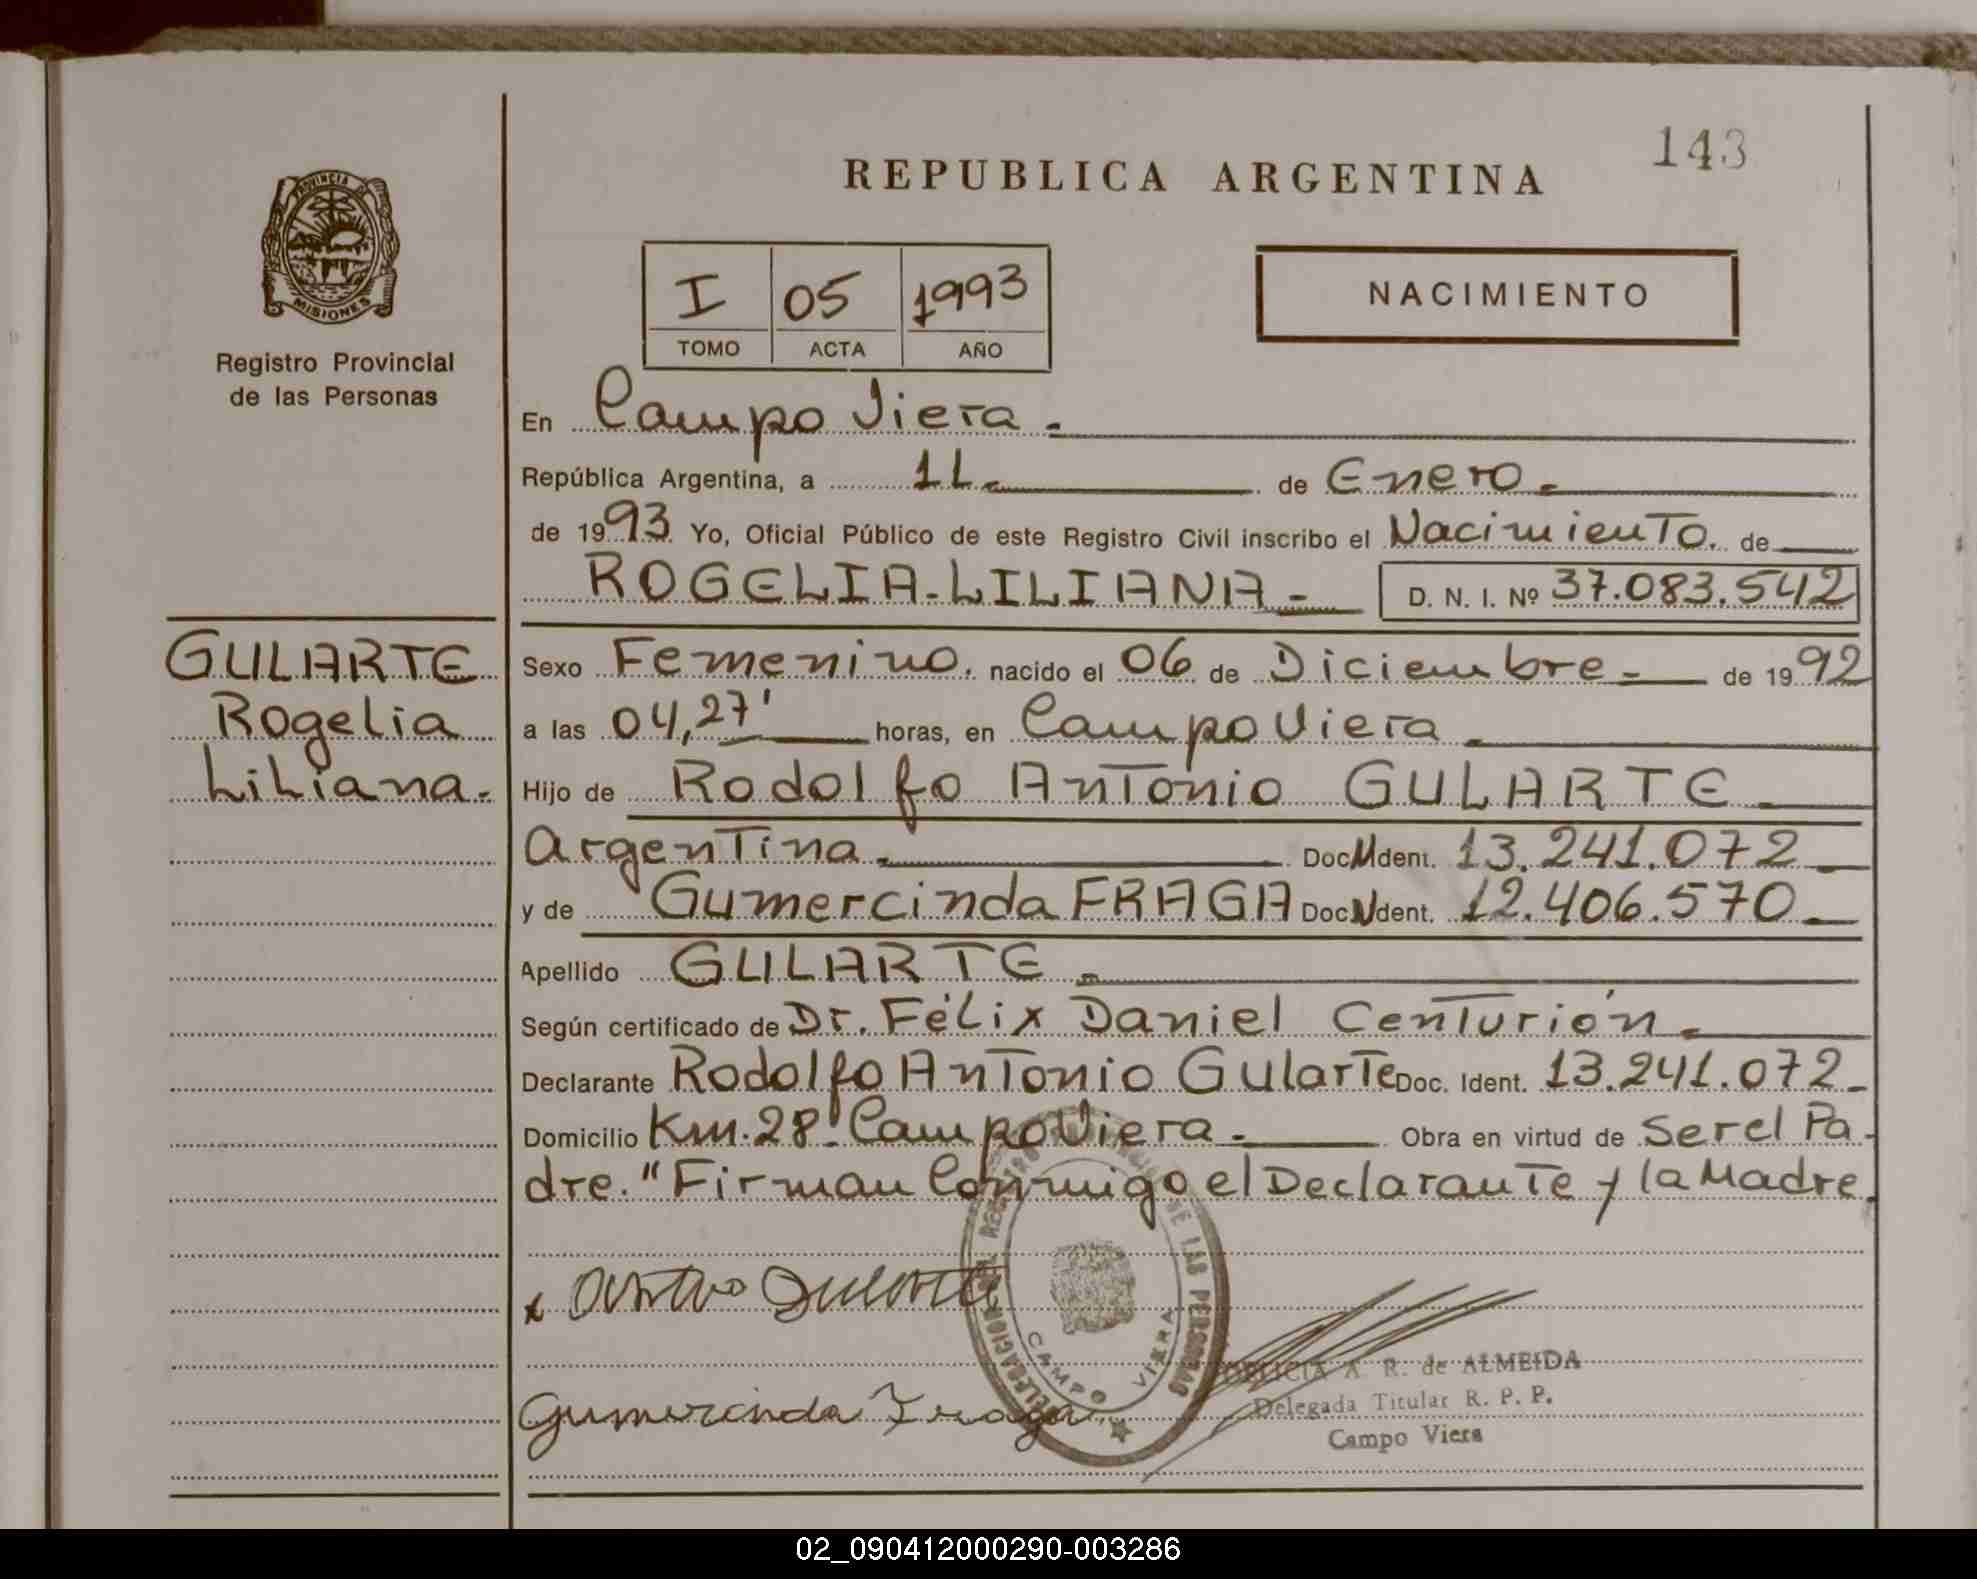 143
REPUBLICA ARGENTINA
PROVINCIA DE
MISIONES
Registro Provincial
de las Personas
I 05 1993
TOMO ACTA AÑO
NACIMIENTO
En Campo Viera.
República Argentina, a 11. de Enero.
de 1993. Yo, Oficial Público de este Registro Civil inscribo el Nacimiento. de
ROGELIA-LILIANA- D. N. I. Nº 37.083.542
GULARTE
Rogelia
Liliana.-
Sexo Femenino. nacido el 06 de Diciembre- de 1992
a las 04,27' horas, en Campo Viera.
Hijo de Rodolfo Antonio GULARTE
Argentina. Doc. Ident. 13.241.072
y de Gumercinda FRAGA Doc. Ident. 12.406.570
Apellido GULARTE.
Según certificado de Dr. Félix Daniel Centurión.
Declarante Rodolfo Antonio Gularte Doc. Ident. 13.241.072
Domicilio Km. 28. Campo Viera. Obra en virtud de Ser el Pa-
dre. "Firman Conmigo el Declarante y la Madre.
DELEGACION REGISTRO DE LAS PERSONAS
CAMPO VIERA
Gumercinda Fraga
A. R. de ALMEIDA
Delegada Titular R. P. P.
Campo Viera
02_090412000290-003286